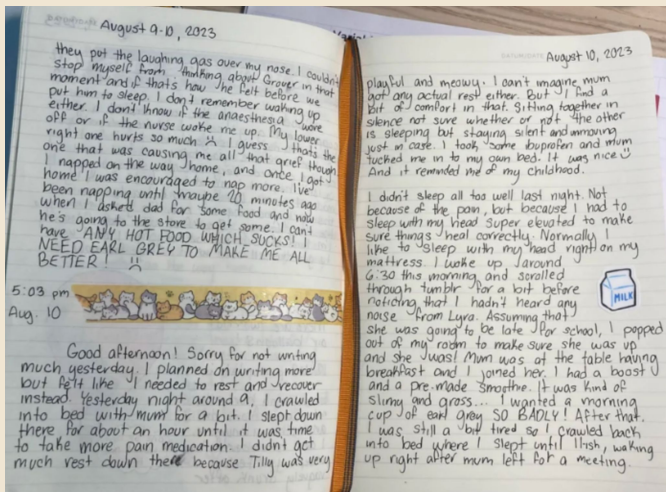 August 9-10, 2023
they put the laughing gas over my nose. I couldn't
stop myself from thinking about Grover in that
moment and if that's how he felt before we
put him to sleep. I don't remember waking up
either. I don't know if the anaesthesia wore
off or if the nurse woke me up. My lower
right one hurts so much I guess that's the
one that was causing me all that grief though.
I napped on the way home, and once I got
home I was encouraged to nap more. I've
been napping until maybe 20 minutes ago
when I asked dad for some food and now
he's going to the store to get some. I can't
have ANY HOT FOOD WHICH SUCKS! I
NEED EARL GREY TO MAKE ME ALL
BETTER!
5:03 pm
Aug. 10
Good afternoon! Sorry for not writing
much yesterday. I planned on writing more
but felt like I needed to rest and recover
instead. Yesterday night around 9, I crawled
into bed with mum for a bit. I slept down
there for about an hour until it was time
to take more pain medication. I didn't get
much rest down there because Tilly was very
August 10, 2023
playful and meowy. I can't imagine mum
got any actual rest either. But I find a
bit of comfort in that. Sitting together in
silence not sure whether or not the other
is sleeping but staying silent and unmoving
just in case. I took some ibuprofen and mum
tucked me in to my own bed. It was nice
And it reminded me of my childhood.
I didn't sleep all too well last night. Not
because of the pain, but because I had to
sleep with my head super elevated to make
sure things heal correctly. Normally I
like to sleep with my head right on my
mattress. I woke up around
6:30 this morning and scrolled
through tumblr for a bit before
noticing that I hadn't heard any
noise from Lyra. Assuming that
she was going to be late for school, I popped
out of my room to make sure she was up
and she was! Mum was at the table having
breakfast and I joined her. I had a boost
and a pre-made smoothie. It was kind of
slimy and gross... I wanted a morning
cup of earl grey SO BADLY! After that
I was still a bit tired so I crawled back
into bed where I slept until 11ish, waking
up right after mum left for a meeting.
MILK